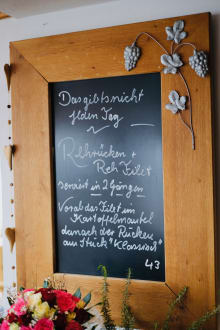 Das gibts nicht
jeden Tag
Rehrücken +
Reh Filet
serviert in 2 Gängen
Vorab das Filet im
Kartoffelmantel
danach der Rücken
am Stück "Klassisch"
43